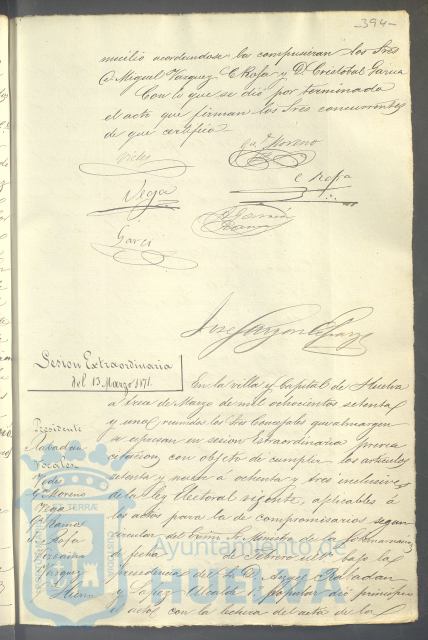 -394-
micilio acordandose la compusieran los Sres
D Miguel Vazquez, C Rofa y Dn Cristobal Garcia
Con lo que se dió por terminada
el acta que firman los Sres concurrentes
de que certifico.
Vides
Gª Moreno
Vega
C Rofa
Garci
Sesion Extraordinaria
del 13 Marzo 1871.
En la villa y Capital de Huelva
a trece de Marzo de mil ochocientos setenta
y uno, reunidos los Sres Concejales que al margen
se espresan en sesion estraordinaria previa
citacion, con objeto de cumplir los articulos
setenta y nueve a ochenta y tres inclusives
de la ley electoral vigente, aplicables á
los actos para la de compromisarios segun
circular del Exmo Sr Ministro de la Gobernacion
de fecha de Febrero ultº bajo la
presidencia del Sr D. Rabadan
y Lopez Alcalde 1º popular dió principio
el acto con la lectura del acta de la
Presidente
Rabadan
Vocales
Vides
G. Moreno
Vega
Gª Ramos
C Rofa
Vazquez
Ayuntamiento de
HUELVA